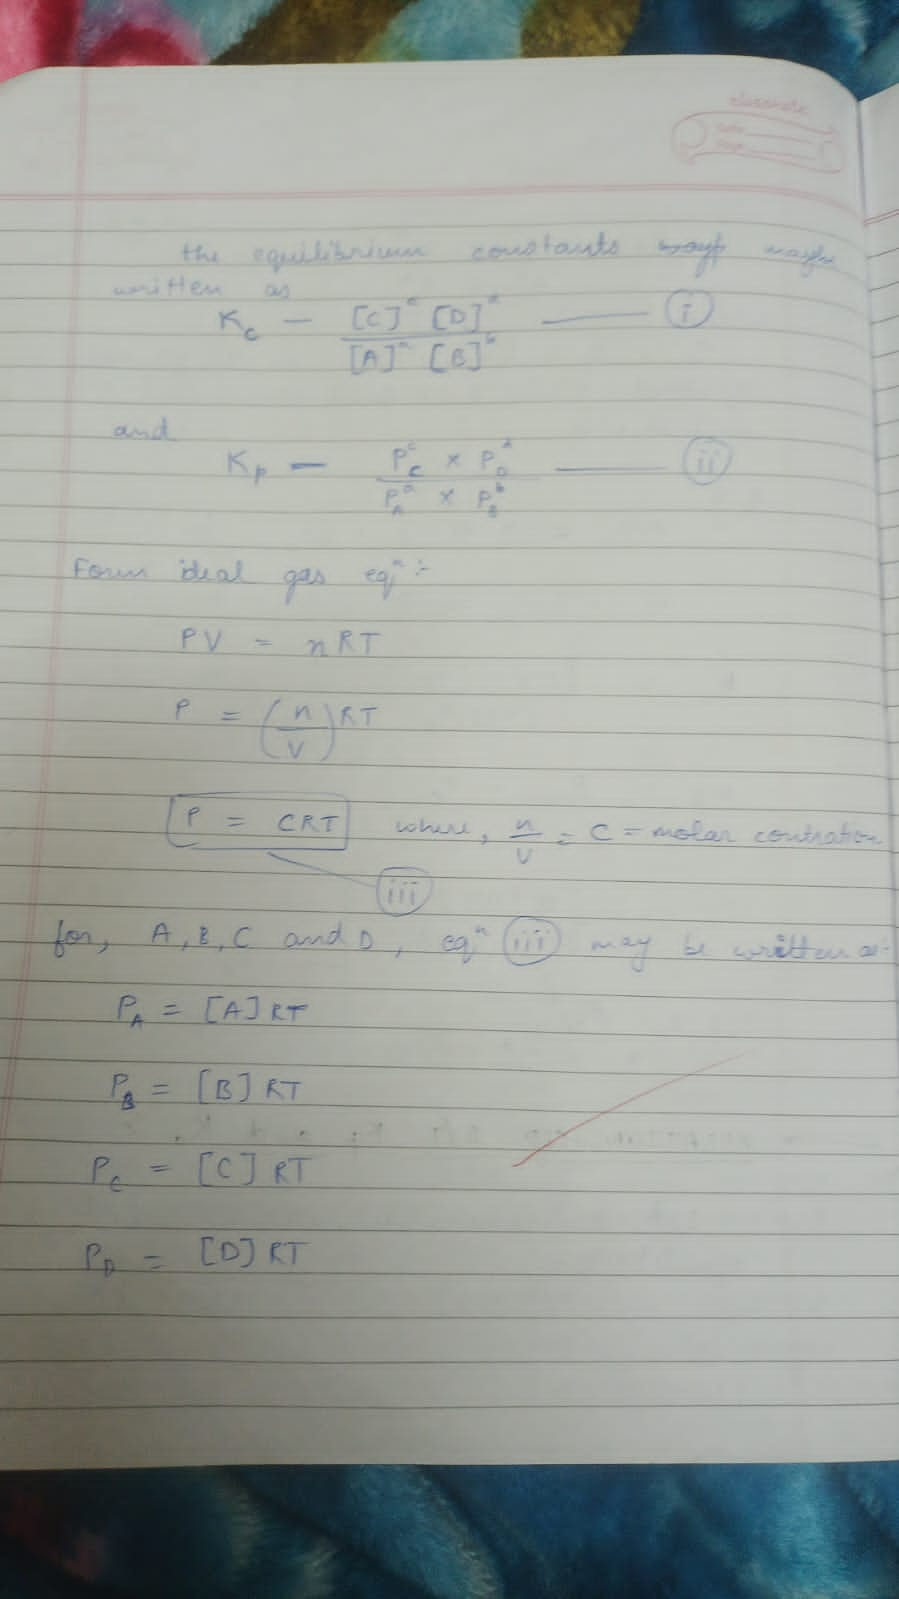 classmate
Date
Page
the equilibrium constants may be
written as
Kc — [C]^c [D]^d / [A]^a [B]^b ——— (i)
and
Kp — P_C^c × P_D^d / P_A^a × P_B^b ——— (ii)
Form ideal gas eqⁿ :-
PV = nRT
P = (n/V) RT
P = CRT where, n/V = C = molar contration
(iii)
for, A, B, C and D, eqⁿ (iii) may be written as-
P_A = [A] RT
P_B = [B] RT
P_C = [C] RT
P_D = [D] RT